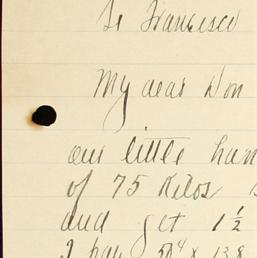 Sr Francisco
My dear Don
our little han
of 75 Kilos
and get 1 1/2